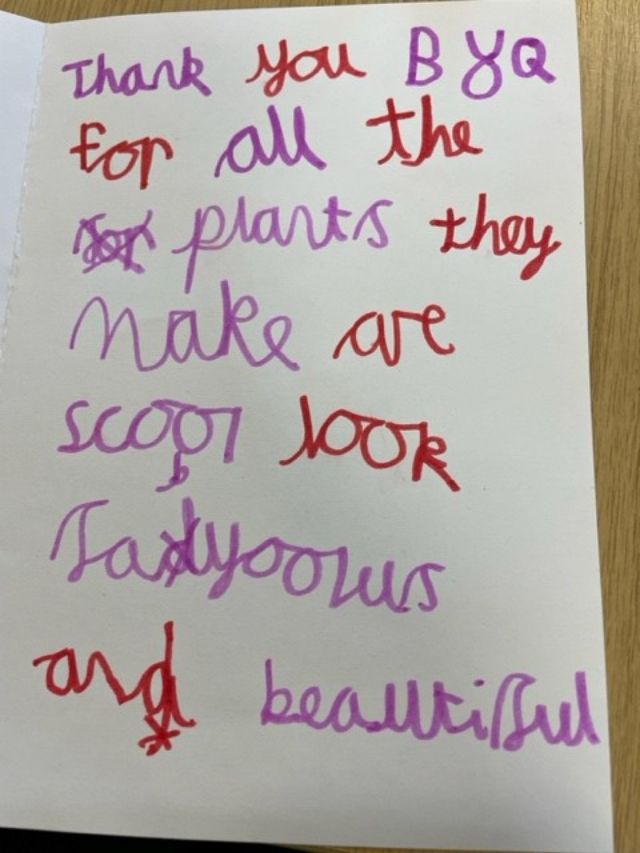 Thank you B&Q
for all the
plants they
make are
scool look
Fadyoolus
and beautiful